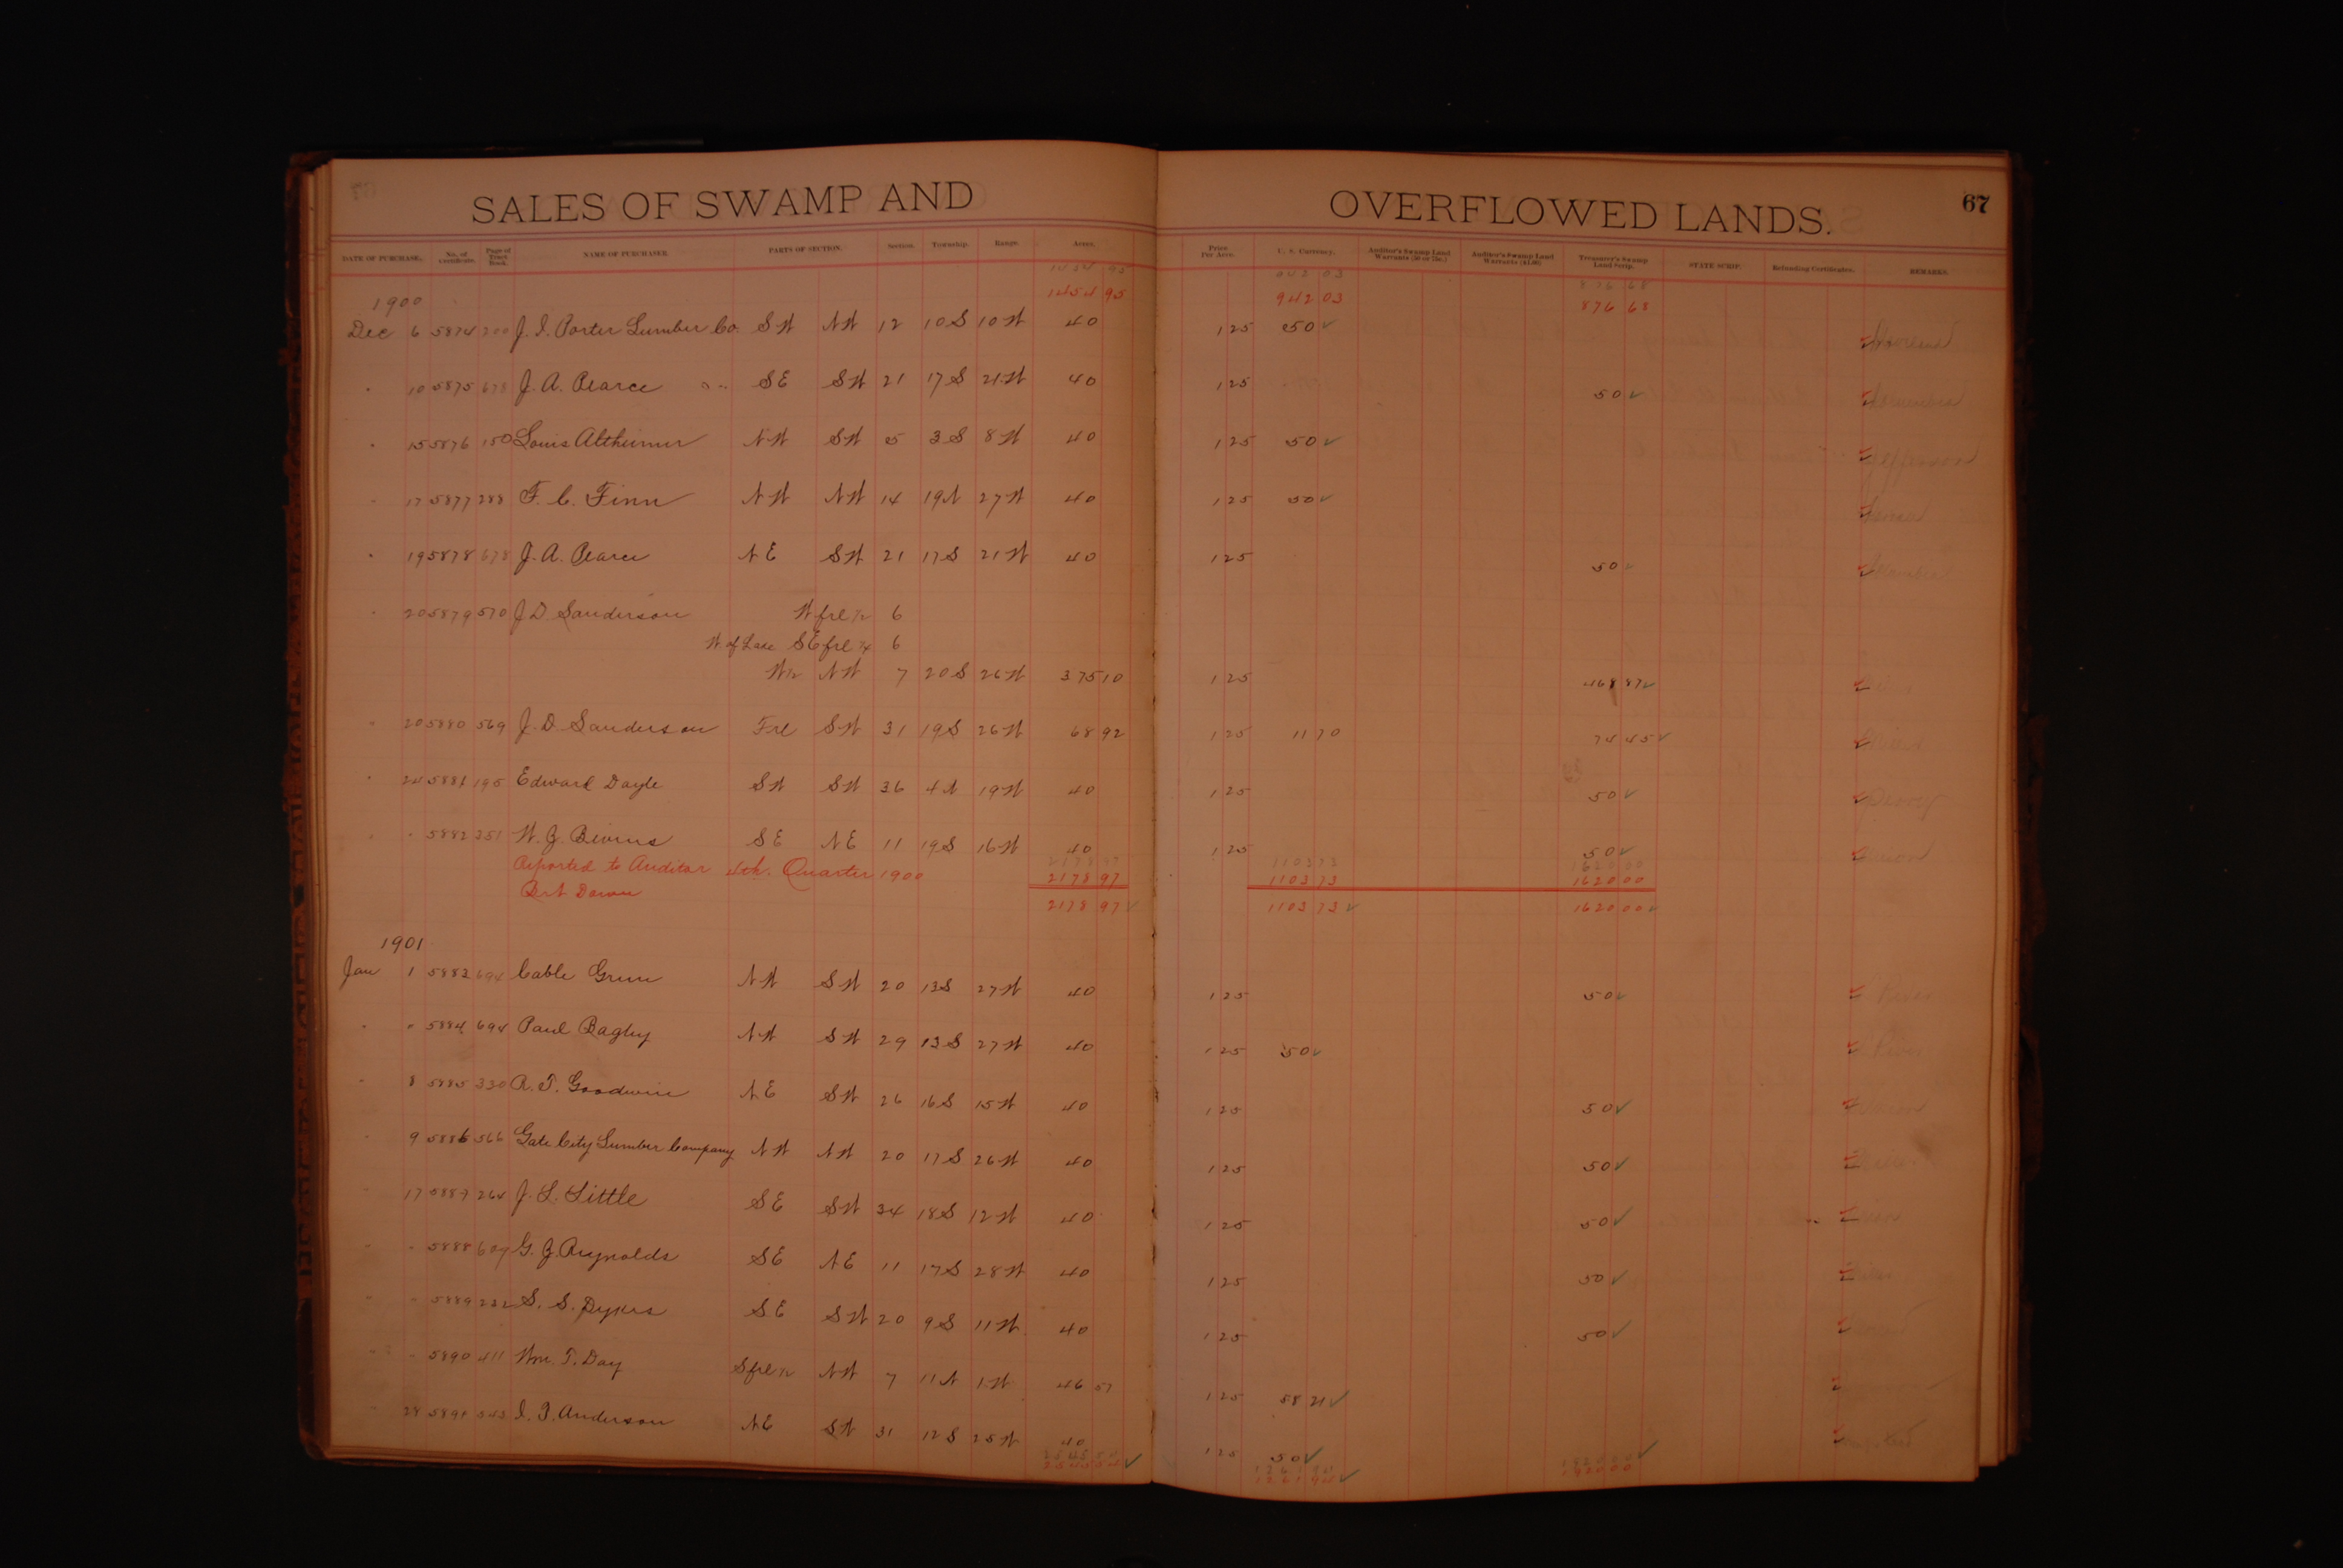 SALES OF SWAMP AND OVERFLOWED LANDS. 67
DATE OF PURCHASE. No. of Certificate. Page of Tract Book. NAME OF PURCHASER PARTS OF SECTION. Section. Township. Range. Acres. Price. Per Acre. U. S. Currency. Auditor's Swamp Land Warrants (50 or 75c.) Auditor's Swamp Land Warrants ($1.00) Treasurer's Swamp Land Scrip. STATE SCRIP. Refunding Certificates. REMARKS.
1454 95 942 03 876 68
1900
Dec 6 5874 200 J. I. Porter Lumber Co. SW NW 12 10S 10W 40 125 50 ✓
" 10 5875 678 J. A. Pearce SE SW 21 17S 21W 40 125 50 ✓
" 15 5876 150 Louis Altheimer NW SW 5 3S 8W 40 125 50 ✓ Jefferson
" 17 5877 288 F. C. Finn NW NW 14 19N 27W 40 125 50 ✓
" 19 5878 678 J. A. Pearce NE SW 21 17S 21W 40 125 50 ✓
" 20 5879 570 J. D. Sanderson W frl ½ 6
W. of Lake SE frl ¼ 6
W½ NW 7 20S 26W 375 10 125 468 87 ✓
" 20 5880 569 J. D. Sanderson Frl SW 31 19S 26W 68 92 125 11 70 74 45 ✓
" 24 5881 195 Edward Dayle SW SW 36 4N 19W 40 125 50 ✓ Perry
" " 5882 351 W. J. Bevins SE NE 11 19S 16W 40 125 50 ✓ Union
Reported to Auditor 4th. Quarter 1900 2178 97 1103 73 1620 00
Brt Down 2178 97 ✓ 1103 73 ✓ 1620 00 ✓
1901
Jan 1 5883 694 Cable Green NW SW 20 13S 27W 40 125 50 ✓ L River
" " 5884 694 Paul Bagby NW SW 29 13S 27W 40 125 50 ✓ L River
" 8 5885 330 R. T. Goodwin NE SW 26 16S 15W 40 125 50 ✓ Union
" 9 5886 566 Gate City Lumber Company NW NW 20 17S 26W 40 125 50 ✓
" 17 5887 264 J. L. Little SE SW 34 18S 12W 40 125 50 ✓
" " 5888 609 G. J. Reynolds SE NE 11 17S 28W 40 125 50 ✓
" " 5889 232 S. S. Dykes SE SW 20 9S 11W 40 125 50 ✓
" " 5890 411 Wm. T. Day S frl ½ NW 7 11N 1W 46 57 125 58 21 ✓
28 5891 543 I. J. Anderson NE SW 31 12S 25W 40 125 50 ✓
2545 54 ✓ 1261 94 ✓ 1920 00 ✓